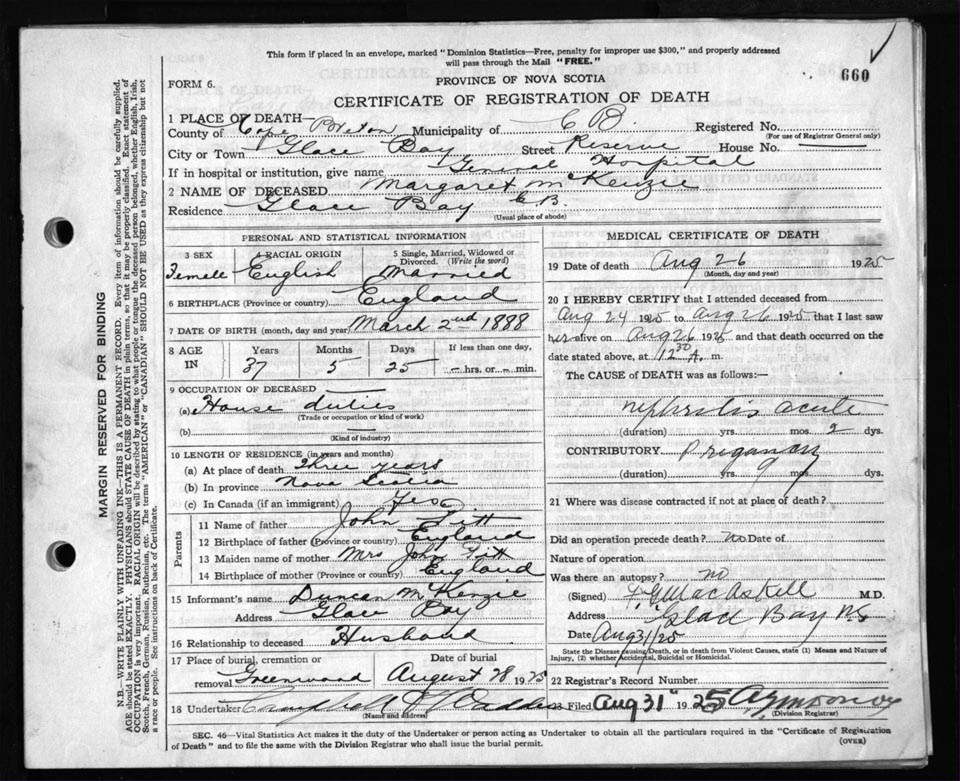 This form if placed in an envelope, marked "Dominion Statistics—Free, penalty for improper use $300," and properly addressed
will pass through the Mail "FREE."
660
FORM 6.
PROVINCE OF NOVA SCOTIA
CERTIFICATE OF REGISTRATION OF DEATH
1 PLACE OF DEATH—
County of Cape Breton Municipality of C B. Registered No.
(For use of Registrar General only)
City or Town Glace Bay Street Reserve House No.
If in hospital or institution, give name General Hospital
2 NAME OF DECEASED Margaret McKenzie
Residence Glace Bay C.B.
(Usual place of abode)
PERSONAL AND STATISTICAL INFORMATION
3 SEX Femele
4 RACIAL ORIGIN English
5 Single, Married, Widowed or Divorced. (Write the word) Married
6 BIRTHPLACE (Province or country) England
7 DATE OF BIRTH (month, day and year) March 2nd 1888
8 AGE IN Years 37 Months 5 Days 25 If less than one day, – hrs. or – min.
9 OCCUPATION OF DECEASED
(a) House duties
(Trade or occupation or kind of work)
(b)
(Kind of industry)
10 LENGTH OF RESIDENCE (in years and months)
(a) At place of death three years
(b) In province Nova Scotia
(c) In Canada (if an immigrant) Yes
Parents
11 Name of father John Titt
12 Birthplace of father (Province or country) England
13 Maiden name of mother Mrs John Titt
14 Birthplace of mother (Province or country) England
15 Informant's name Duncan McKenzie
Address Glace Bay
16 Relationship to deceased Husband
17 Place of burial, cremation or removal Greenwood
Date of burial August 28 1925
18 Undertaker
(Name and address)
MEDICAL CERTIFICATE OF DEATH
19 Date of death Aug 26 1925
(Month, day and year)
20 I HEREBY CERTIFY that I attended deceased from
Aug 24 1925 to Aug 26 1925 that I last saw
her alive on Aug 26 1925 and that death occurred on the
date stated above, at 12 30 A. m.
The CAUSE of DEATH was as follows:
nephritis acute
(duration) yrs. mos. 2 dys.
CONTRIBUTORY Pregnancy
(duration) yrs. 9 mos. dys.
21 Where was disease contracted if not at place of death?
Did an operation precede death? no Date of
Nature of operation
Was there an autopsy? no
(Signed) MacAskill M.D.
Address Glace Bay N.S
Date Aug 31/25
State the Disease causing Death, or in death from Violent Causes, state (1) Means and Nature of
Injury, (2) whether Accidental, Suicidal or Homicidal.
22 Registrar's Record Number
23 Filed Aug 31" 1925
(Division Registrar)
SEC. 46—Vital Statistics Act makes it the duty of the Undertaker or person acting as Undertaker to obtain all the particulars required in the "Certificate of Registration
of Death" and to file the same with the Division Registrar who shall issue the burial permit.
(OVER)
MARGIN RESERVED FOR BINDING
N.B.—WRITE PLAINLY WITH UNFADING INK—THIS IS A PERMANENT RECORD. Every item of information should be carefully supplied.
AGE should be stated EXACTLY. PHYSICIANS should STATE CAUSE OF DEATH in plain terms, so that it may be properly classified. Exact statement of
OCCUPATION is very important. RACIAL ORIGIN will be described by stating to what people or tongue the deceased person belonged, whether English, Irish,
Scotch, French, German, Russian, Ruthenian, etc. The terms "AMERICAN" or "CANADIAN" SHOULD NOT BE USED as they express citizenship but not
a race or people. See instructions on back of Certificate.